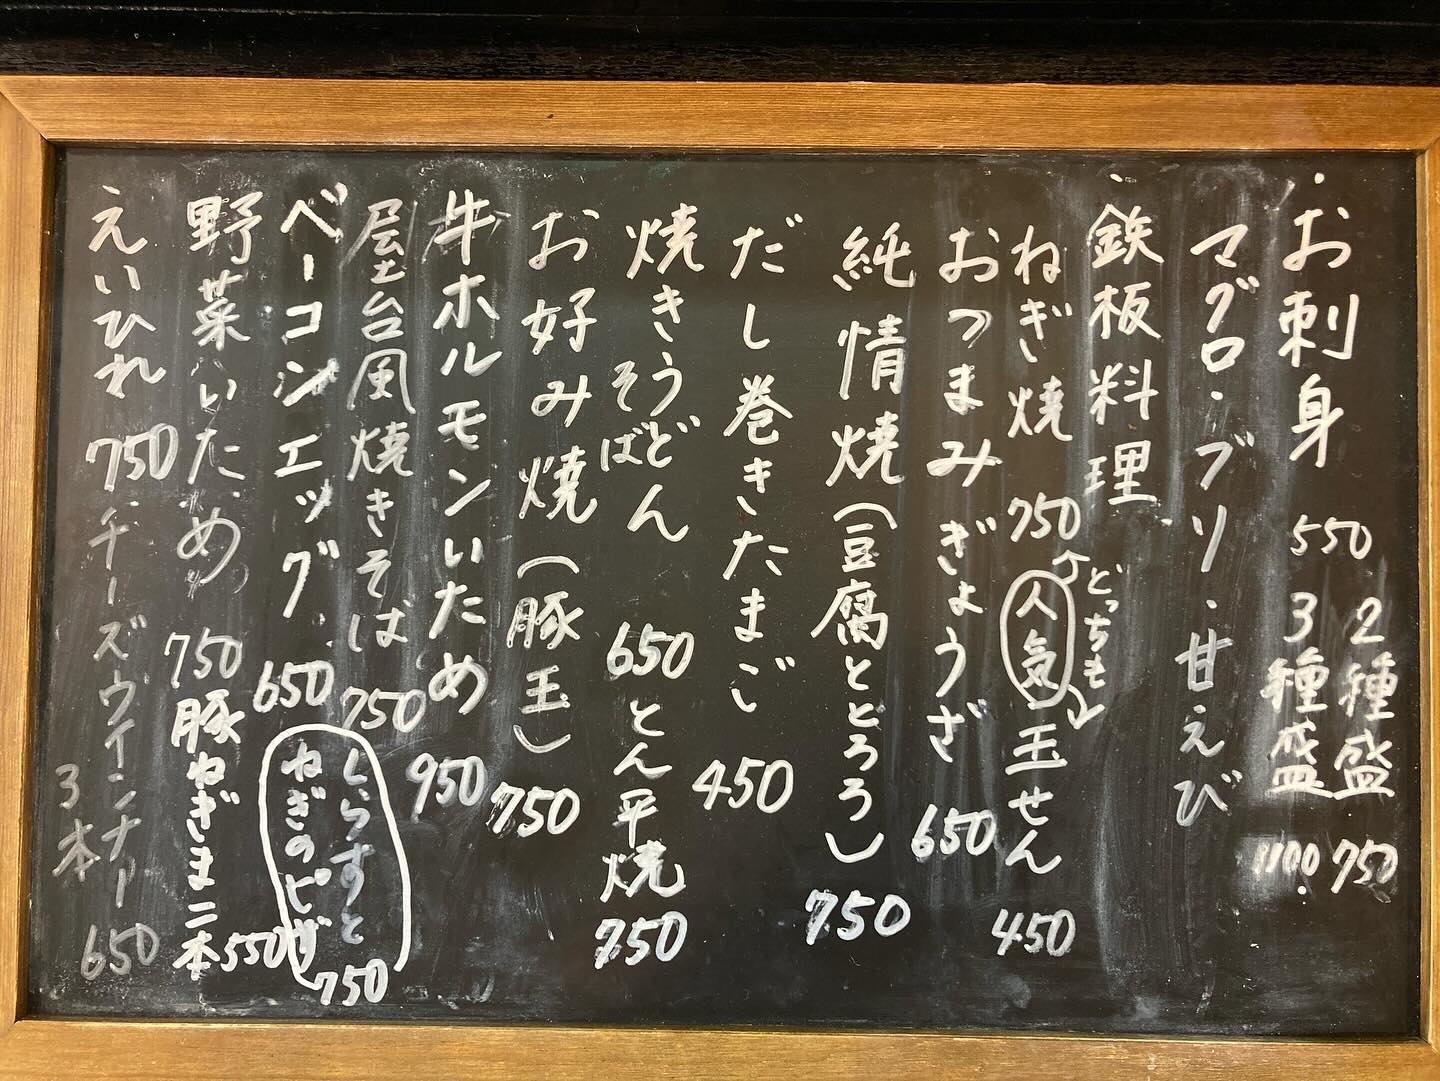 お刺身 550 2種盛 750
3種盛 1100
マグロ・ブリ・甘えび
鉄板料理
ねぎ焼 750 人気 玉せん 450
どっちも
おつまみぎょうざ 650
純情焼(豆腐ととろろ) 750
だし巻きたまご 450
焼きうどん 650 とん平焼 750
そば
お好み焼(豚玉) 750
牛ホルモンいため 950
屋台風焼きそば 750
しらすと
ねぎのピザ
750
ベーコンエッグ 650
野菜いため 750 豚ねぎま二本550
えいひれ 750 チーズウインナー 650
3本